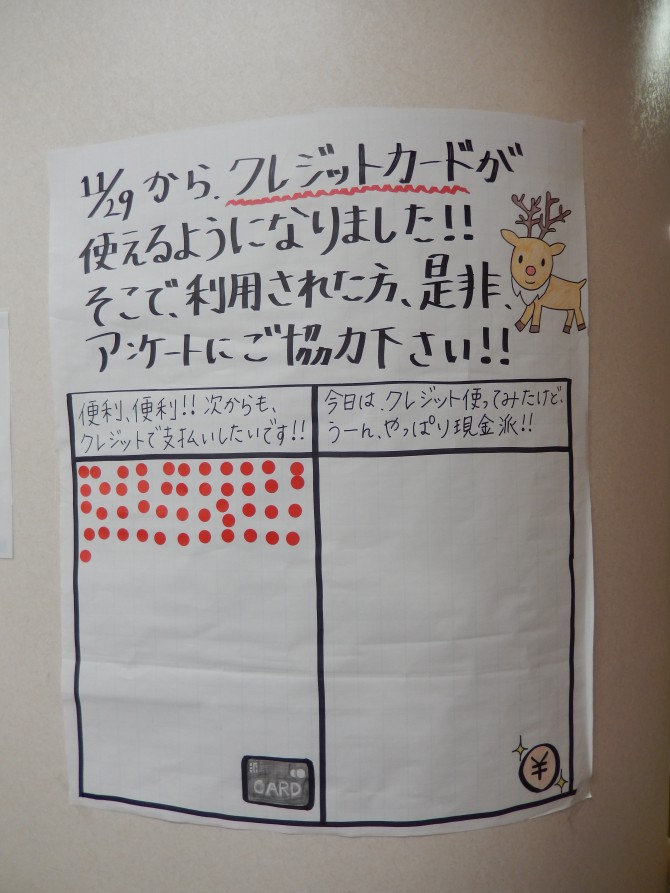 11/29から、クレジットカードが
使えるようになりました!!
そこで、利用された方、是非、
アンケートにご協力下さい!!
便利、便利!! 次からも、
クレジットで支払いしたいです!!
今日は、クレジット使ってみたけど、
うーん、やっぱり現金派!!
CARD
¥